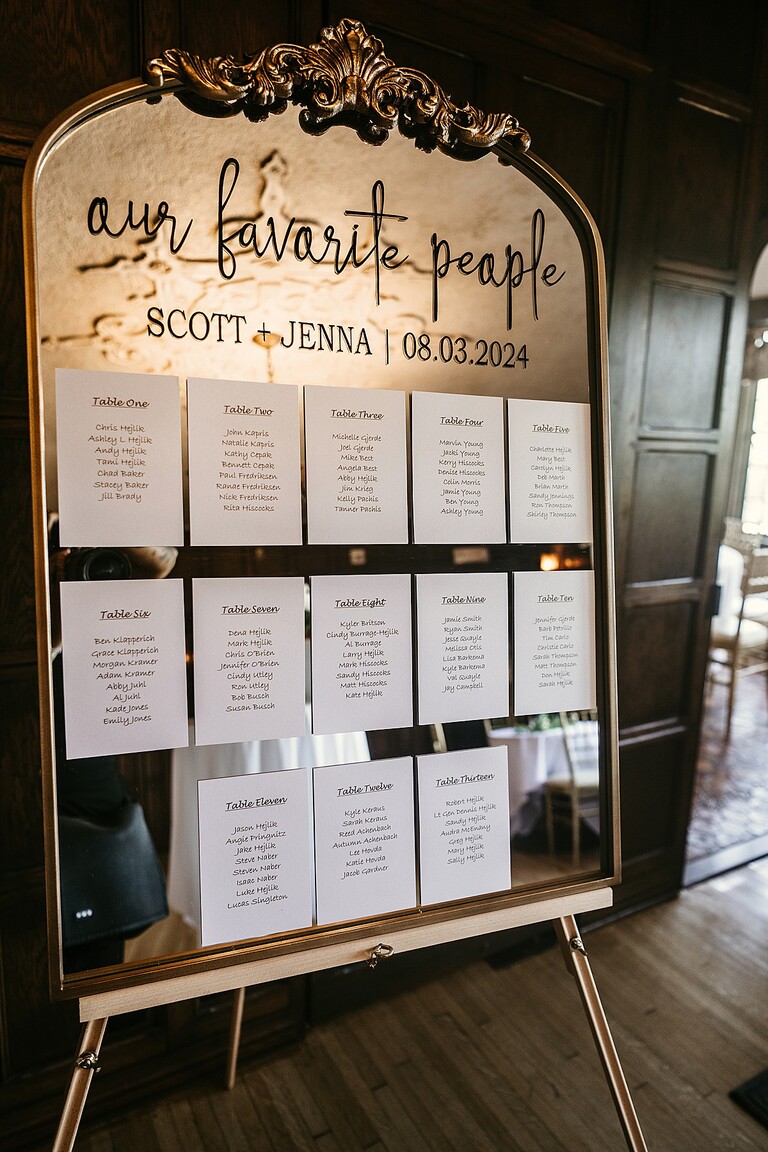 our favorite people
SCOTT + JENNA | 08.03.2024
Table One
Chris Hejlik
Ashley L Hejlik
Andy Hejlik
Tami Hejlik
Chad Baker
Stacey Baker
Jill Brady
Table Two
John Kapris
Natalie Kapris
Kathy Cepak
Bennett Cepak
Paul Fredriksen
Ranae Fredriksen
Nick Fredriksen
Rita Hiscocks
Table Three
Michelle Gjerde
Joel Gjerde
Mike Best
Angela Best
Abby Hejlik
Jim Krieg
Kelly Pachis
Tanner Pachis
Table Four
Marvin Young
Jacki Young
Kerry Hiscocks
Denise Hiscocks
Colin Morris
Jamie Young
Ben Young
Ashley Young
Table Five
Charlotte Hejlik
Mary Best
Carolyn Hejlik
Deb Marth
Brian Marth
Sandy Jennings
Ron Thompson
Shirley Thompson
Table Six
Ben Klapperich
Grace Klapperich
Morgan Kramer
Adam Kramer
Abby Juhl
Al Juhl
Kade Jones
Emily Jones
Table Seven
Dena Hejlik
Mark Hejlik
Chris O'Brien
Jennifer O'Brien
Cindy Utley
Ron Utley
Bob Busch
Susan Busch
Table Eight
Kyler Britson
Cindy Burrage-Hejlik
Al Burrage
Larry Hejlik
Mark Hiscocks
Sandy Hiscocks
Matt Hiscocks
Kate Hejlik
Table Nine
Jamie Smith
Ryan Smith
Jesse Quayle
Melissa Otis
Lisa Barkema
Kyle Barkema
Val Quayle
Jay Campbell
Table Ten
Jennifer Gjerde
Barb Petrillo
Tim Carlo
Christie Carlo
Sarah Thompson
Matt Thompson
Don Hejlik
Sarah Hejlik
Table Eleven
Jason Hejlik
Angie Pringnitz
Jake Hejlik
Steve Naber
Steven Naber
Isaac Naber
Luke Hejlik
Lucas Singleton
Table Twelve
Kyle Keraus
Sarah Keraus
Reed Achenbach
Autumn Achenbach
Lee Hovda
Katie Hovda
Jacob Gardner
Table Thirteen
Robert Hejlik
Lt Gen Dennis Hejlik
Sandy Hejlik
Audra McEnany
Greg Hejlik
Mary Hejlik
Sally Hejlik